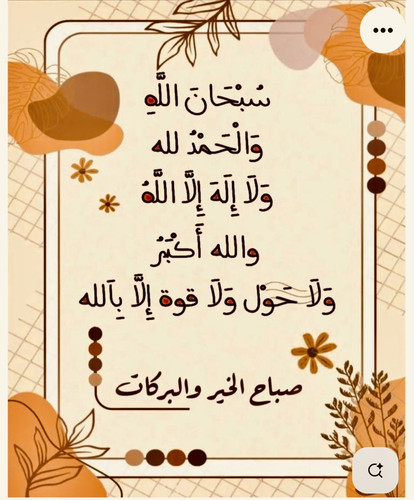 سُبْحَانَ اللَّهِ
وَالْحَمْدُ لله
وَلَا إِلَهَ إِلَّا اللَّهُ
والله أَكْبَرُ
وَلَا حَوْل وَلَا قوة إِلَّا بِاَلله
صباح الخير والبركات